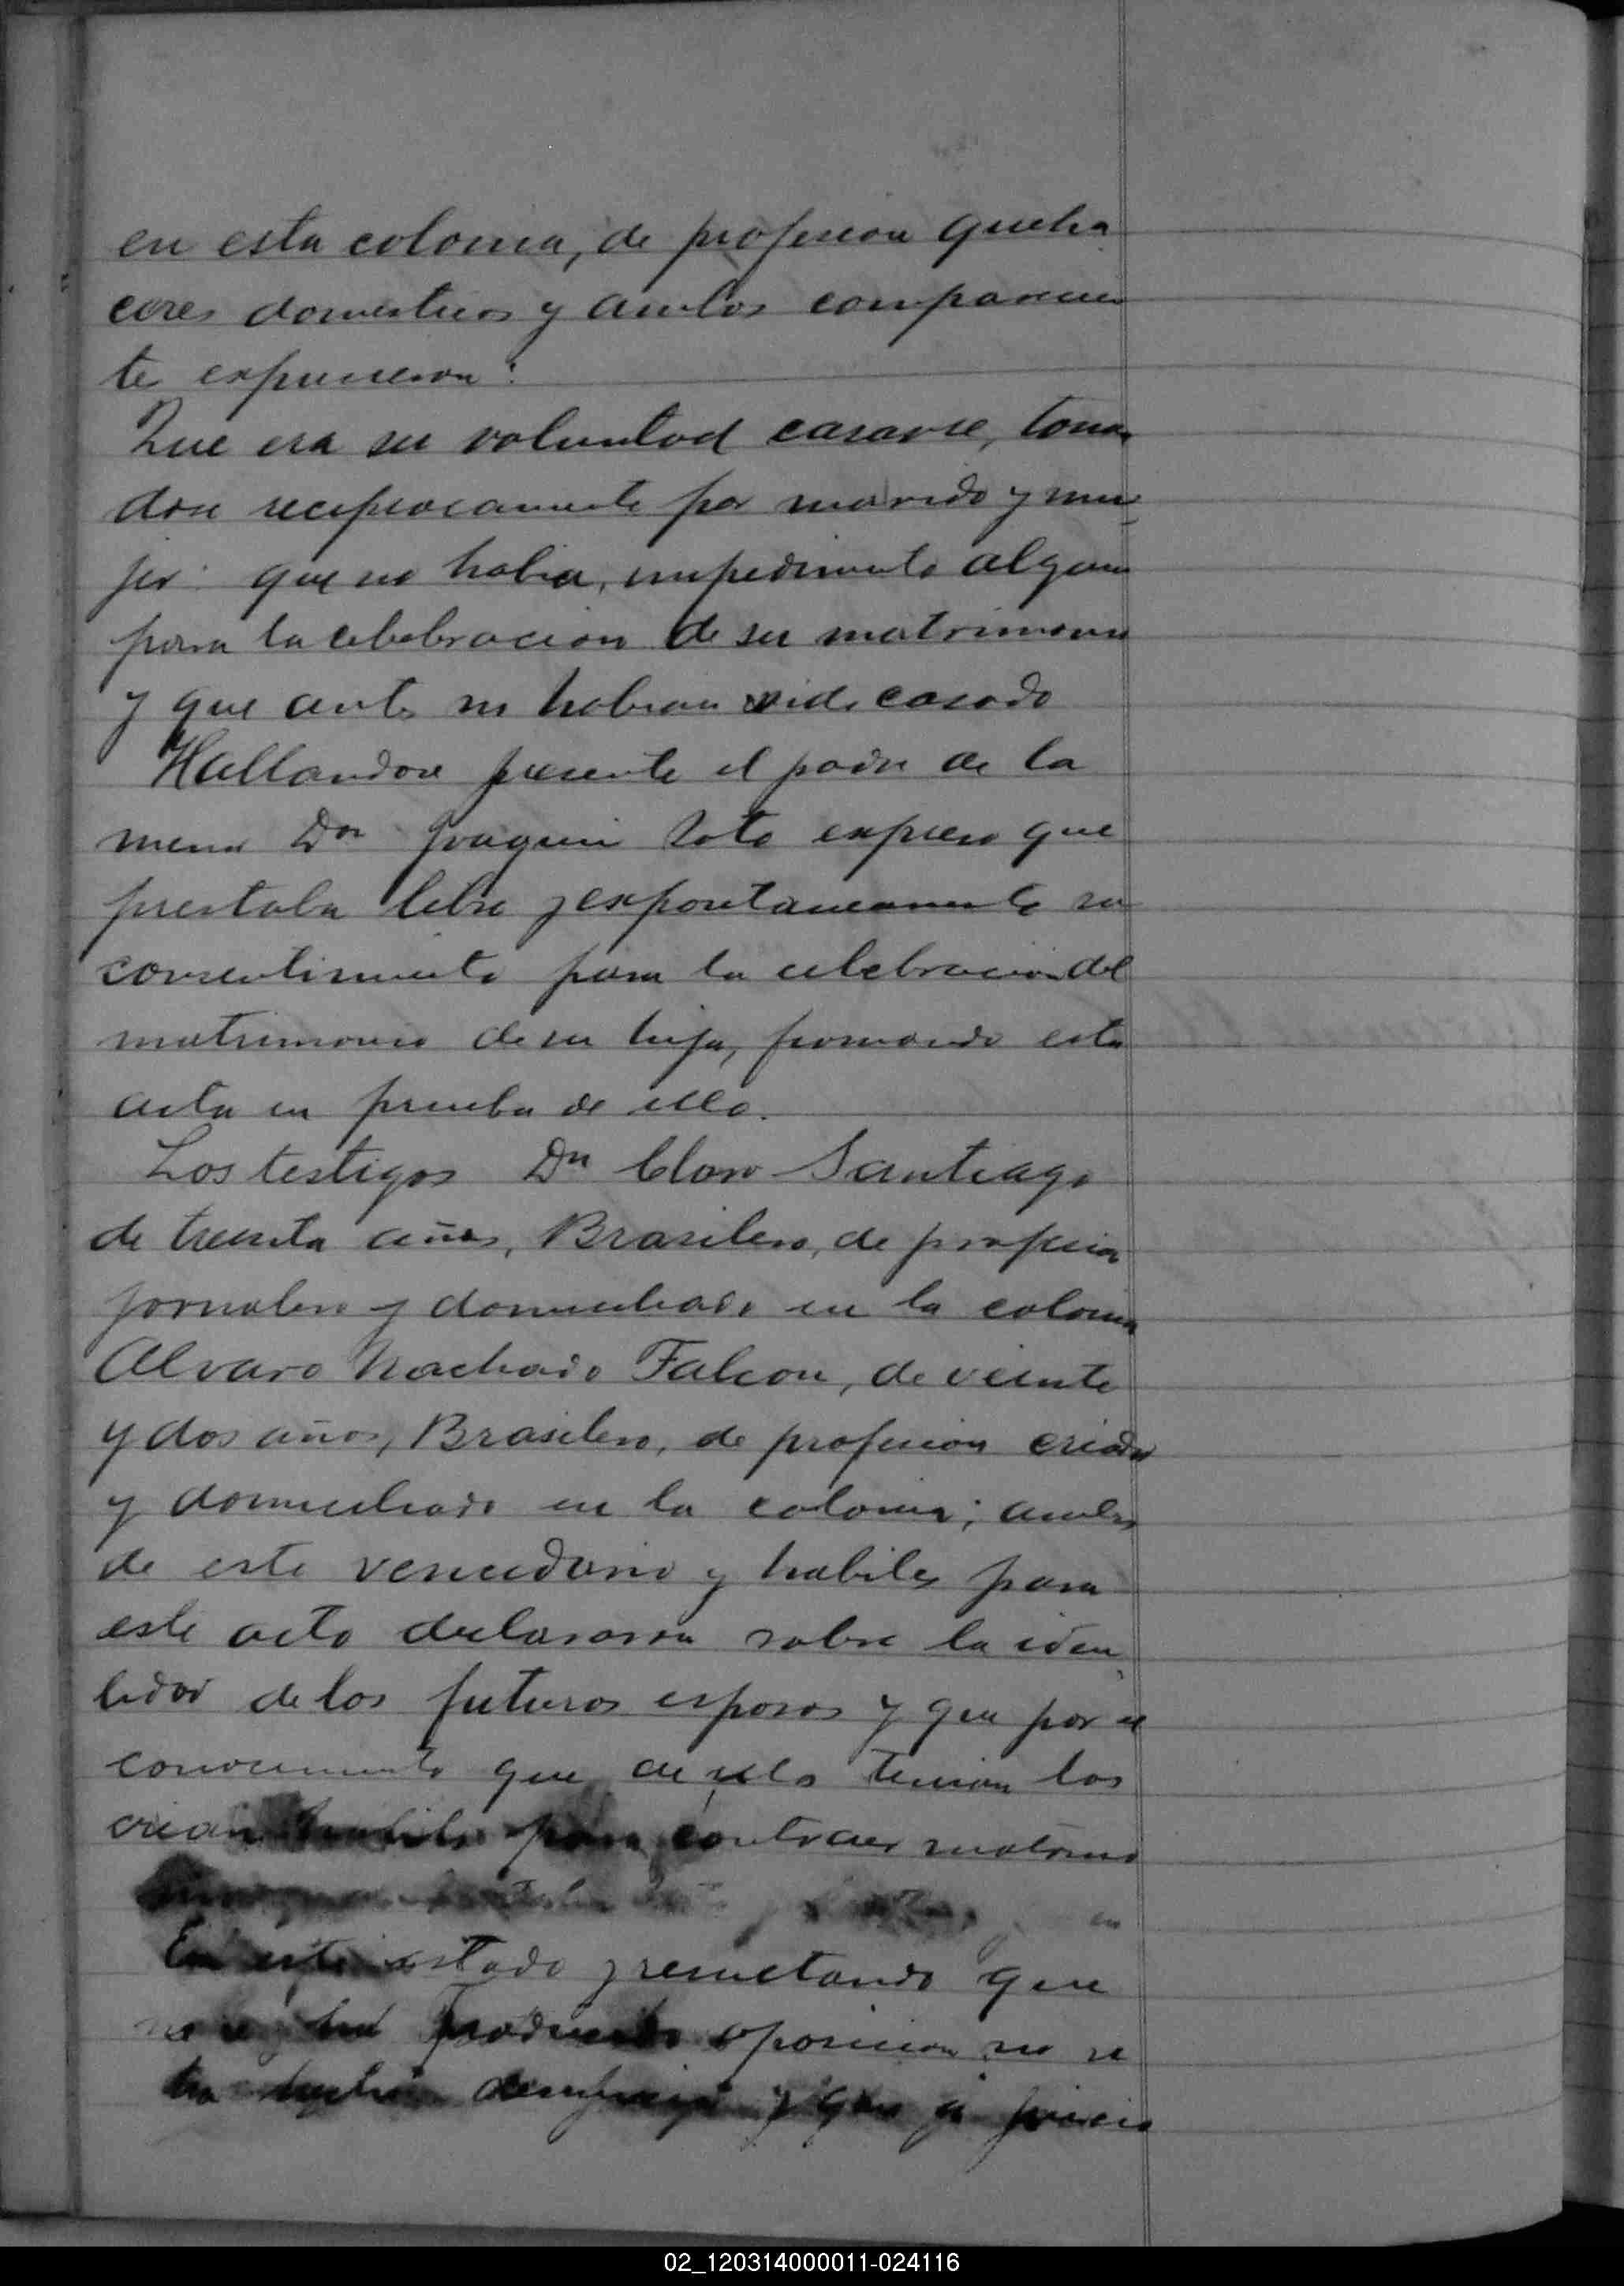 en esta colonia, de profesion queha
ceres domesticos y ambos comparecien
tes expusieron:
Que era su voluntad casarse, toman
dose reciprocamente por marido y mu
jer: que no habia, impedimento alguno
para la celebracion de su matrimonio
y que antes no habian sido casado
Hallandose presente el padre de la
menor Dn Joaquin Soto expreso que
prestaba libre y expontaneamente su
consentimiento para la celebracion del
matrimonio de su hija, firmando esta
acta en prueba de ello.
Los testigos Dn Claro Santiago
de treinta años, Brasilero, de profesion
jornalero y domiciliado en la colonia
Alvaro Machado Falcon, de veinte
y dos años, Brasilero, de profesion criador
y domiciliado en la colonia; ambos
de este vecindario y habiles para
este acto declararon sobre la iden
tidad de los futuros esposos y que por el
conocimiento que de ellos tenian los
creian habiles para contraer matrimo
en
En este estado y resultando que
no se ha producido oposicion no se
ha y que a juicio
02_120314000011-024116